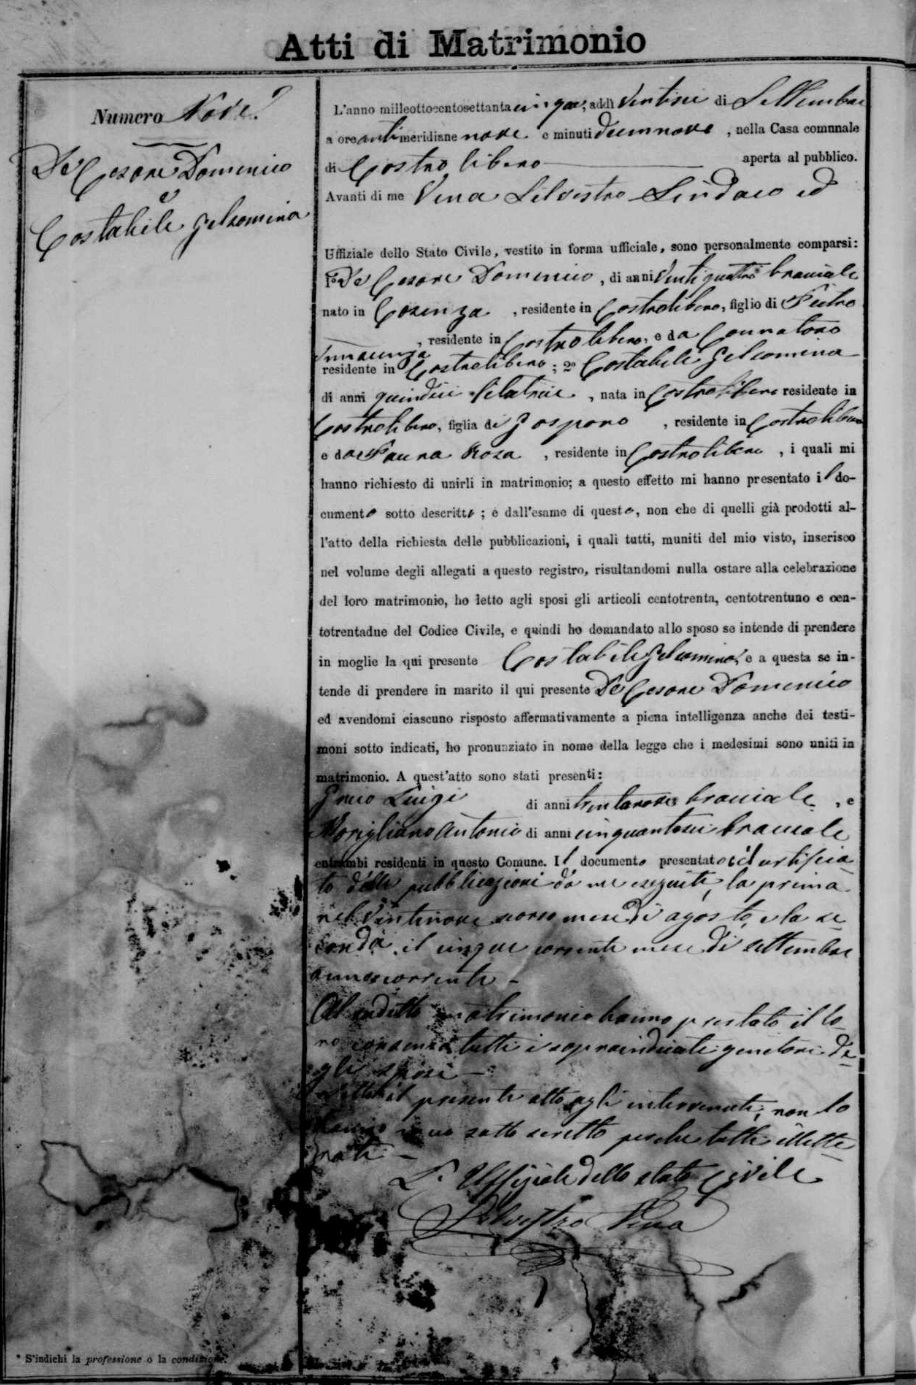 Atti di Matrimonio
Numero Nove
De Cesare Domenico
e
Costabile Gelsomina
L'anno milleottocentosettantacinque, addì Ventisei di Settembre
a ore antimeridiane nove e minuti diecinnove, nella Casa comunale
di Castrolibero aperta al pubblico.
Avanti di me Vena Silvestro Sindaco ed
Uffiziale dello Stato Civile, vestito in forma ufficiale, sono personalmente comparsi:
1º De Cesare Domenico, di anni Ventiquattro bracciale
nato in Cosenza, residente in Castrolibero, figlio di Pietro
, residente in Castrolibero, e da
Innocenza
residente in Castrolibero; 2º Costabile Gelsomina
di anni quindici filatrice, nata in Castrolibero residente in
Castrolibero, figlia di Gasparo, residente in Castrolibero
e da Rosa, residente in Castrolibero, i quali mi
hanno richiesto di unirli in matrimonio; a questo effetto mi hanno presentato il do-
cumento sotto descritto; e dall'esame di questo, non che di quelli già prodotti al-
l'atto della richiesta delle pubblicazioni, i quali tutti, muniti del mio visto, inserisco
nel volume degli allegati a questo registro, risultandomi nulla ostare alla celebrazione
del loro matrimonio, ho letto agli sposi gli articoli centotrenta, centotrentuno e cen-
totrentadue del Codice Civile, e quindi ho domandato allo sposo se intende di prendere
in moglie la qui presente Costabile Gelsomina, e a questa se in-
tende di prendere in marito il qui presente De Cesare Domenico
ed avendomi ciascuno risposto affermativamente a piena intelligenza anche dei testi-
moni sotto indicati, ho pronunziato in nome della legge che i medesimi sono uniti in
matrimonio. A quest'atto sono stati presenti:
Greco Luigi di anni trentanove bracciale, e
Morigliano Antonio di anni cinquantasei bracciale
entrambi residenti in questo Comune. Il documento presentato è il certifica-
to delle pubblicazioni da me eseguite, la prima
nel Ventinove scorso mese di agosto, e la se
conda il cinque corrente mese di settembre
anno corrente -
Al sudetto matrimonio hanno prestato il lo
ro consenso tutti i sopraindicati genitori de
gli sposi -
Letto il presente atto agli intervenuti, non lo
hanno meco sotto scritto perche tutti illette
rati -
L'Uffiziale dello stato Civile
Silvestro Vena
* S'indichi la professione o la condizione.